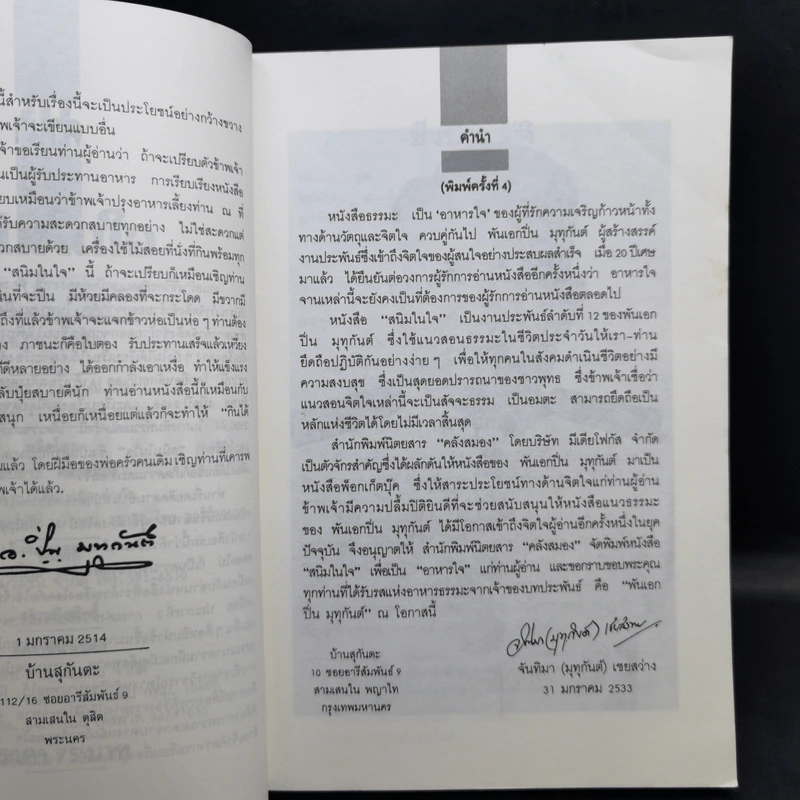 นี้สำหรับเรื่องนี้จะเป็นประโยชน์อย่างกว้างขวาง
พเจ้าจะเขียนแบบอื่น
จ้าขอเรียนท่านผู้อ่านว่า ถ้าจะเปรียบตัวข้าพเจ้า
นเป็นผู้รับประทานอาหาร การเรียบเรียงหนังสือ
ยบเหมือนว่าข้าพเจ้าปรุงอาหารเลี้ยงท่าน ณ ที่
ด้รับความสะดวกสบายทุกอย่าง ไม่ใช่สะดวกแต่
วกสบายด้วย เครื่องใช้ไม้สอยที่นั่งที่กินพร้อมทุก
“สนิมในใจ” นี้ ถ้าจะเปรียบก็เหมือนเชิญท่าน
นินที่จะปีน มีห้วยมีคลองที่จะกระโดด มีขวากมี
ถึงที่แล้วข้าพเจ้าจะแจกข้าวห่อเป็นห่อ ๆ ท่านต้อง
าง ภาชนะก็คือใบตอง รับประทานเสร็จแล้วเหวี่ยง
ก็ดีหลายอย่าง ได้ออกกำลังเอาเหงื่อ ทำให้แข็งแรง
ลับปุ๋ยสบายดีนัก ท่านอ่านหนังสือนี้ก็เหมือนกับ
สนุก เหนื่อยก็เหนื่อยแต่แล้วก็จะทำให้ “กินได้
มแล้ว โดยฝีมือของพ่อครัวคนเดิม เชิญท่านที่เคารพ
พเจ้าได้แล้ว.
อ. ปิ่น มุทุกันต์
1 มกราคม 2514
บ้านสุกันตะ
112/16 ซอยอารีสัมพันธ์ 9
สามเสนใน ดุสิต
พระนคร
คำนำ
(พิมพ์ครั้งที่ 4)
หนังสือธรรมะ เป็น ‘อาหารใจ’ ของผู้ที่รักความเจริญก้าวหน้าทั้ง
ทางด้านวัตถุและจิตใจ ควบคู่กันไป พันเอกปิ่น มุทุกันต์ ผู้สร้างสรรค์
งานประพันธ์ซึ่งเข้าถึงจิตใจของผู้สนใจอย่างประสบผลสำเร็จ เมื่อ 20 ปีเศษ
มาแล้ว ได้ยืนยันต่อวงการผู้รักการอ่านหนังสืออีกครั้งหนึ่งว่า อาหารใจ
จานเหล่านี้จะยังคงเป็นที่ต้องการของผู้รักการอ่านหนังสือตลอดไป
หนังสือ “สนิมในใจ” เป็นงานประพันธ์ลำดับที่ 12 ของพันเอก
ปิ่น มุทุกันต์ ซึ่งใช้แนวสอนธรรมะในชีวิตประจำวันให้เรา-ท่าน
ยึดถือปฏิบัติกันอย่างง่าย ๆ เพื่อให้ทุกคนในสังคมดำเนินชีวิตอย่างมี
ความสงบสุข ซึ่งเป็นสุดยอดปรารถนาของชาวพุทธ ซึ่งข้าพเจ้าเชื่อว่า
แนวสอนจิตใจเหล่านี้จะเป็นสัจจะธรรม เป็นอมตะ สามารถยึดถือเป็น
หลักแห่งชีวิตได้โดยไม่มีเวลาสิ้นสุด
สำนักพิมพ์นิตยสาร “คลังสมอง” โดยบริษัท มีเดียโฟกัส จำกัด
เป็นตัวจักรสำคัญซึ่งได้ผลักดันให้หนังสือของ พันเอกปิ่น มุทุกันต์ มาเป็น
หนังสือพ็อกเก็ตบุ๊ค ซึ่งให้สาระประโยชน์ทางด้านจิตใจแก่ท่านผู้อ่าน
ข้าพเจ้ามีความปลื้มปิติยินดีที่จะช่วยสนับสนุนให้หนังสือแนวธรรมะ
ของ พันเอกปิ่น มุทุกันต์ ได้มีโอกาสเข้าถึงจิตใจผู้อ่านอีกครั้งหนึ่งในยุค
ปัจจุบัน จึงอนุญาตให้ สำนักพิมพ์นิตยสาร “คลังสมอง” จัดพิมพ์หนังสือ
“สนิมในใจ” เพื่อเป็น “อาหารใจ” แก่ท่านผู้อ่าน และขอกราบขอบพระคุณ
ทุกท่านที่ได้รับรสแห่งอาหารธรรมะจากเจ้าของบทประพันธ์ คือ “พันเอก
ปิ่น มุทุกันต์” ณ โอกาสนี้
จันทิมา (มุทุกันต์) เชยสว่าง
บ้านสุกันตะ
10 ซอยอารีสัมพันธ์ 9
สามเสนใน พญาไท
กรุงเทพมหานคร
จันทิมา (มุทุกันต์) เชยสว่าง
31 มกราคม 2533